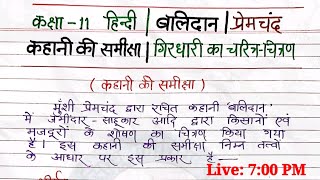 कक्षा-11 हिन्दी | बलिदान | प्रेमचंद
कहानी की समीक्षा | गिरधारी का चरित्र-चित्रण
( कहानी की समीक्षा )
मुंशी प्रेमचंद द्वारा रचित कहानी 'बलिदान'
में जमींदार-साहूकार आदि द्वारा किसानों एवं
मजदूरों के शोषण का चित्रण किया गया
है। इस कहानी की समीक्षा निम्न तत्वों
के आधार पर इस प्रकार है —
Live: 7:00 PM